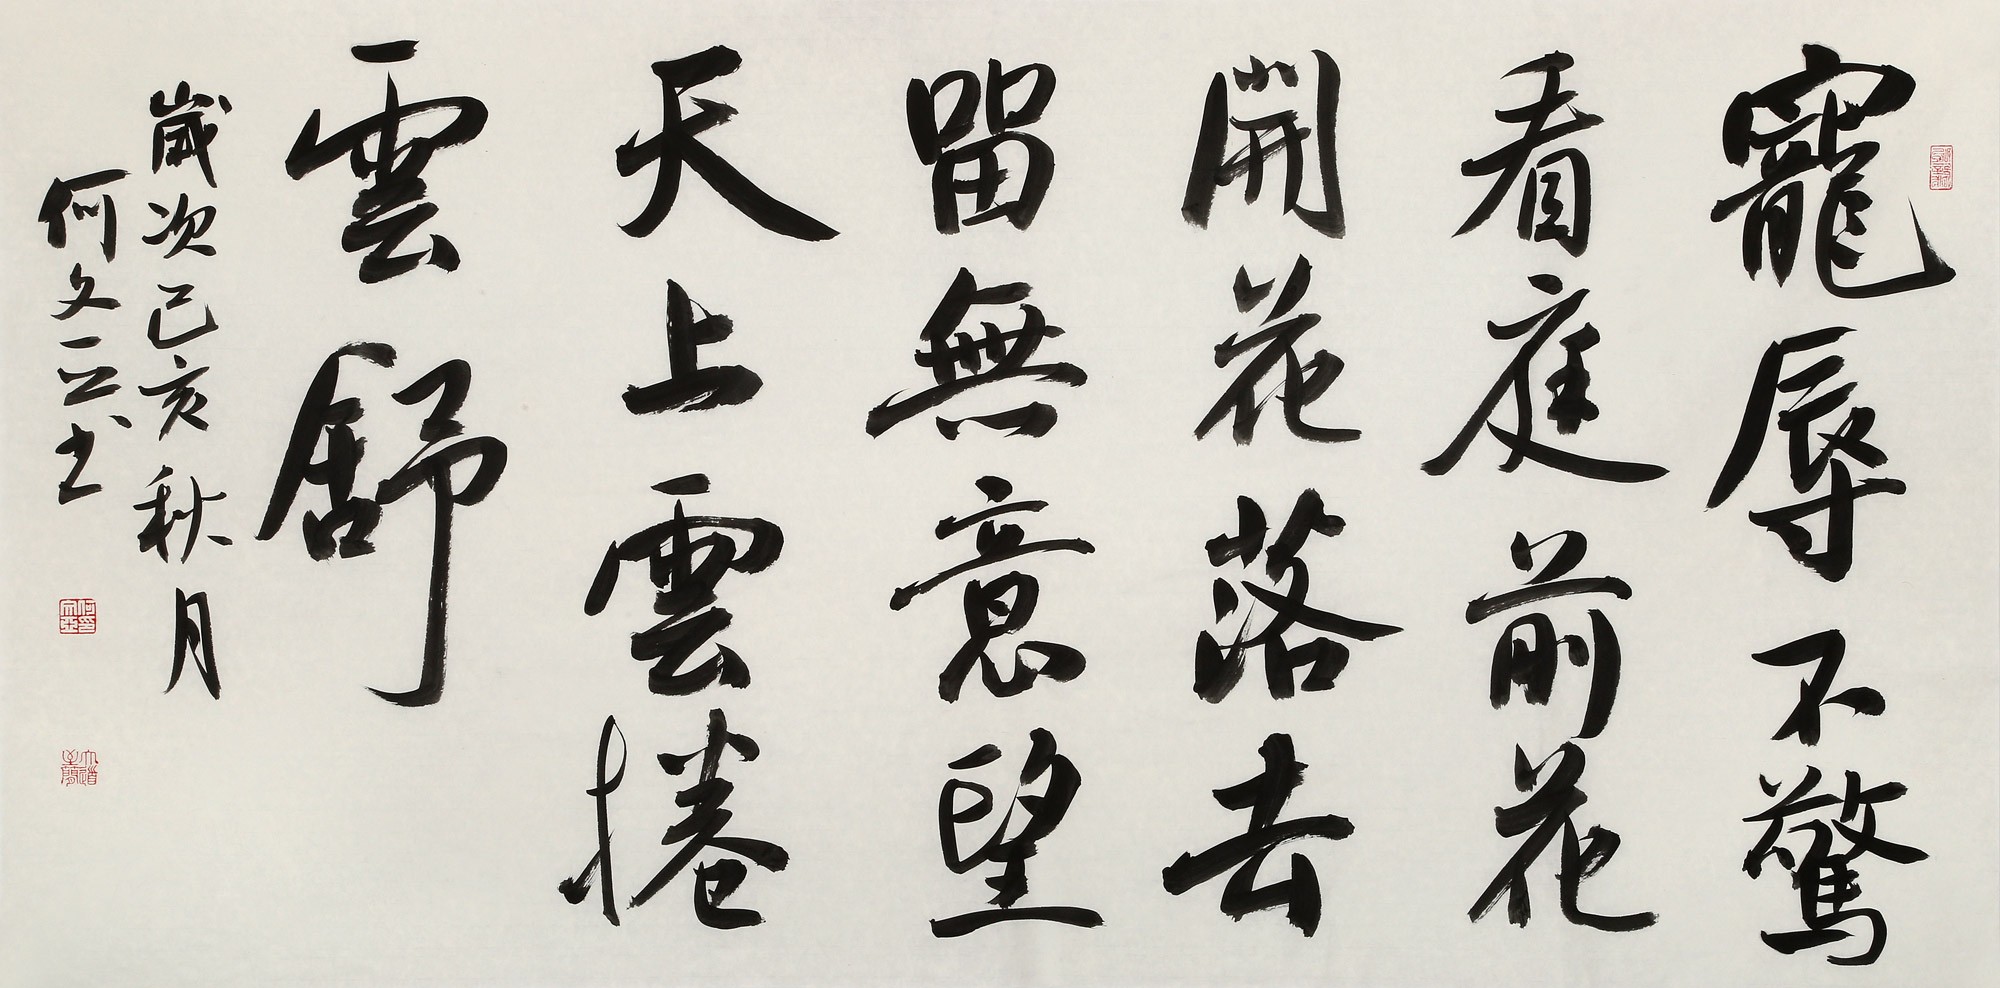 寵辱不驚
看庭前花
開花落去
留無意望
天上雲捲
雲舒
歲次己亥秋月
何文书
大道至簡